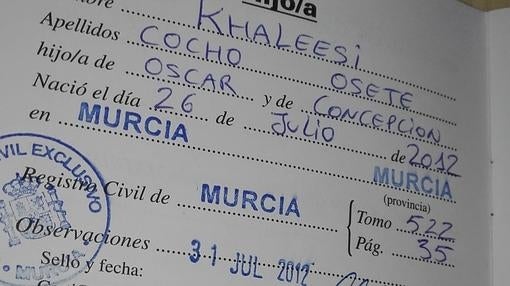 hijo/a
Nombre KHALEESi
Apellidos COCHO OSETE
hijo/a de OSCAR y de CONCEPCION
Nació el día 26 de JULIO de 2012
en MURCIA MURCIA
(provincia)
Registro Civil de MURCIA Tomo 522
Pág. 35
Observaciones 31 JUL 2012
Sello y fecha:
VIL EXCLUSIVO